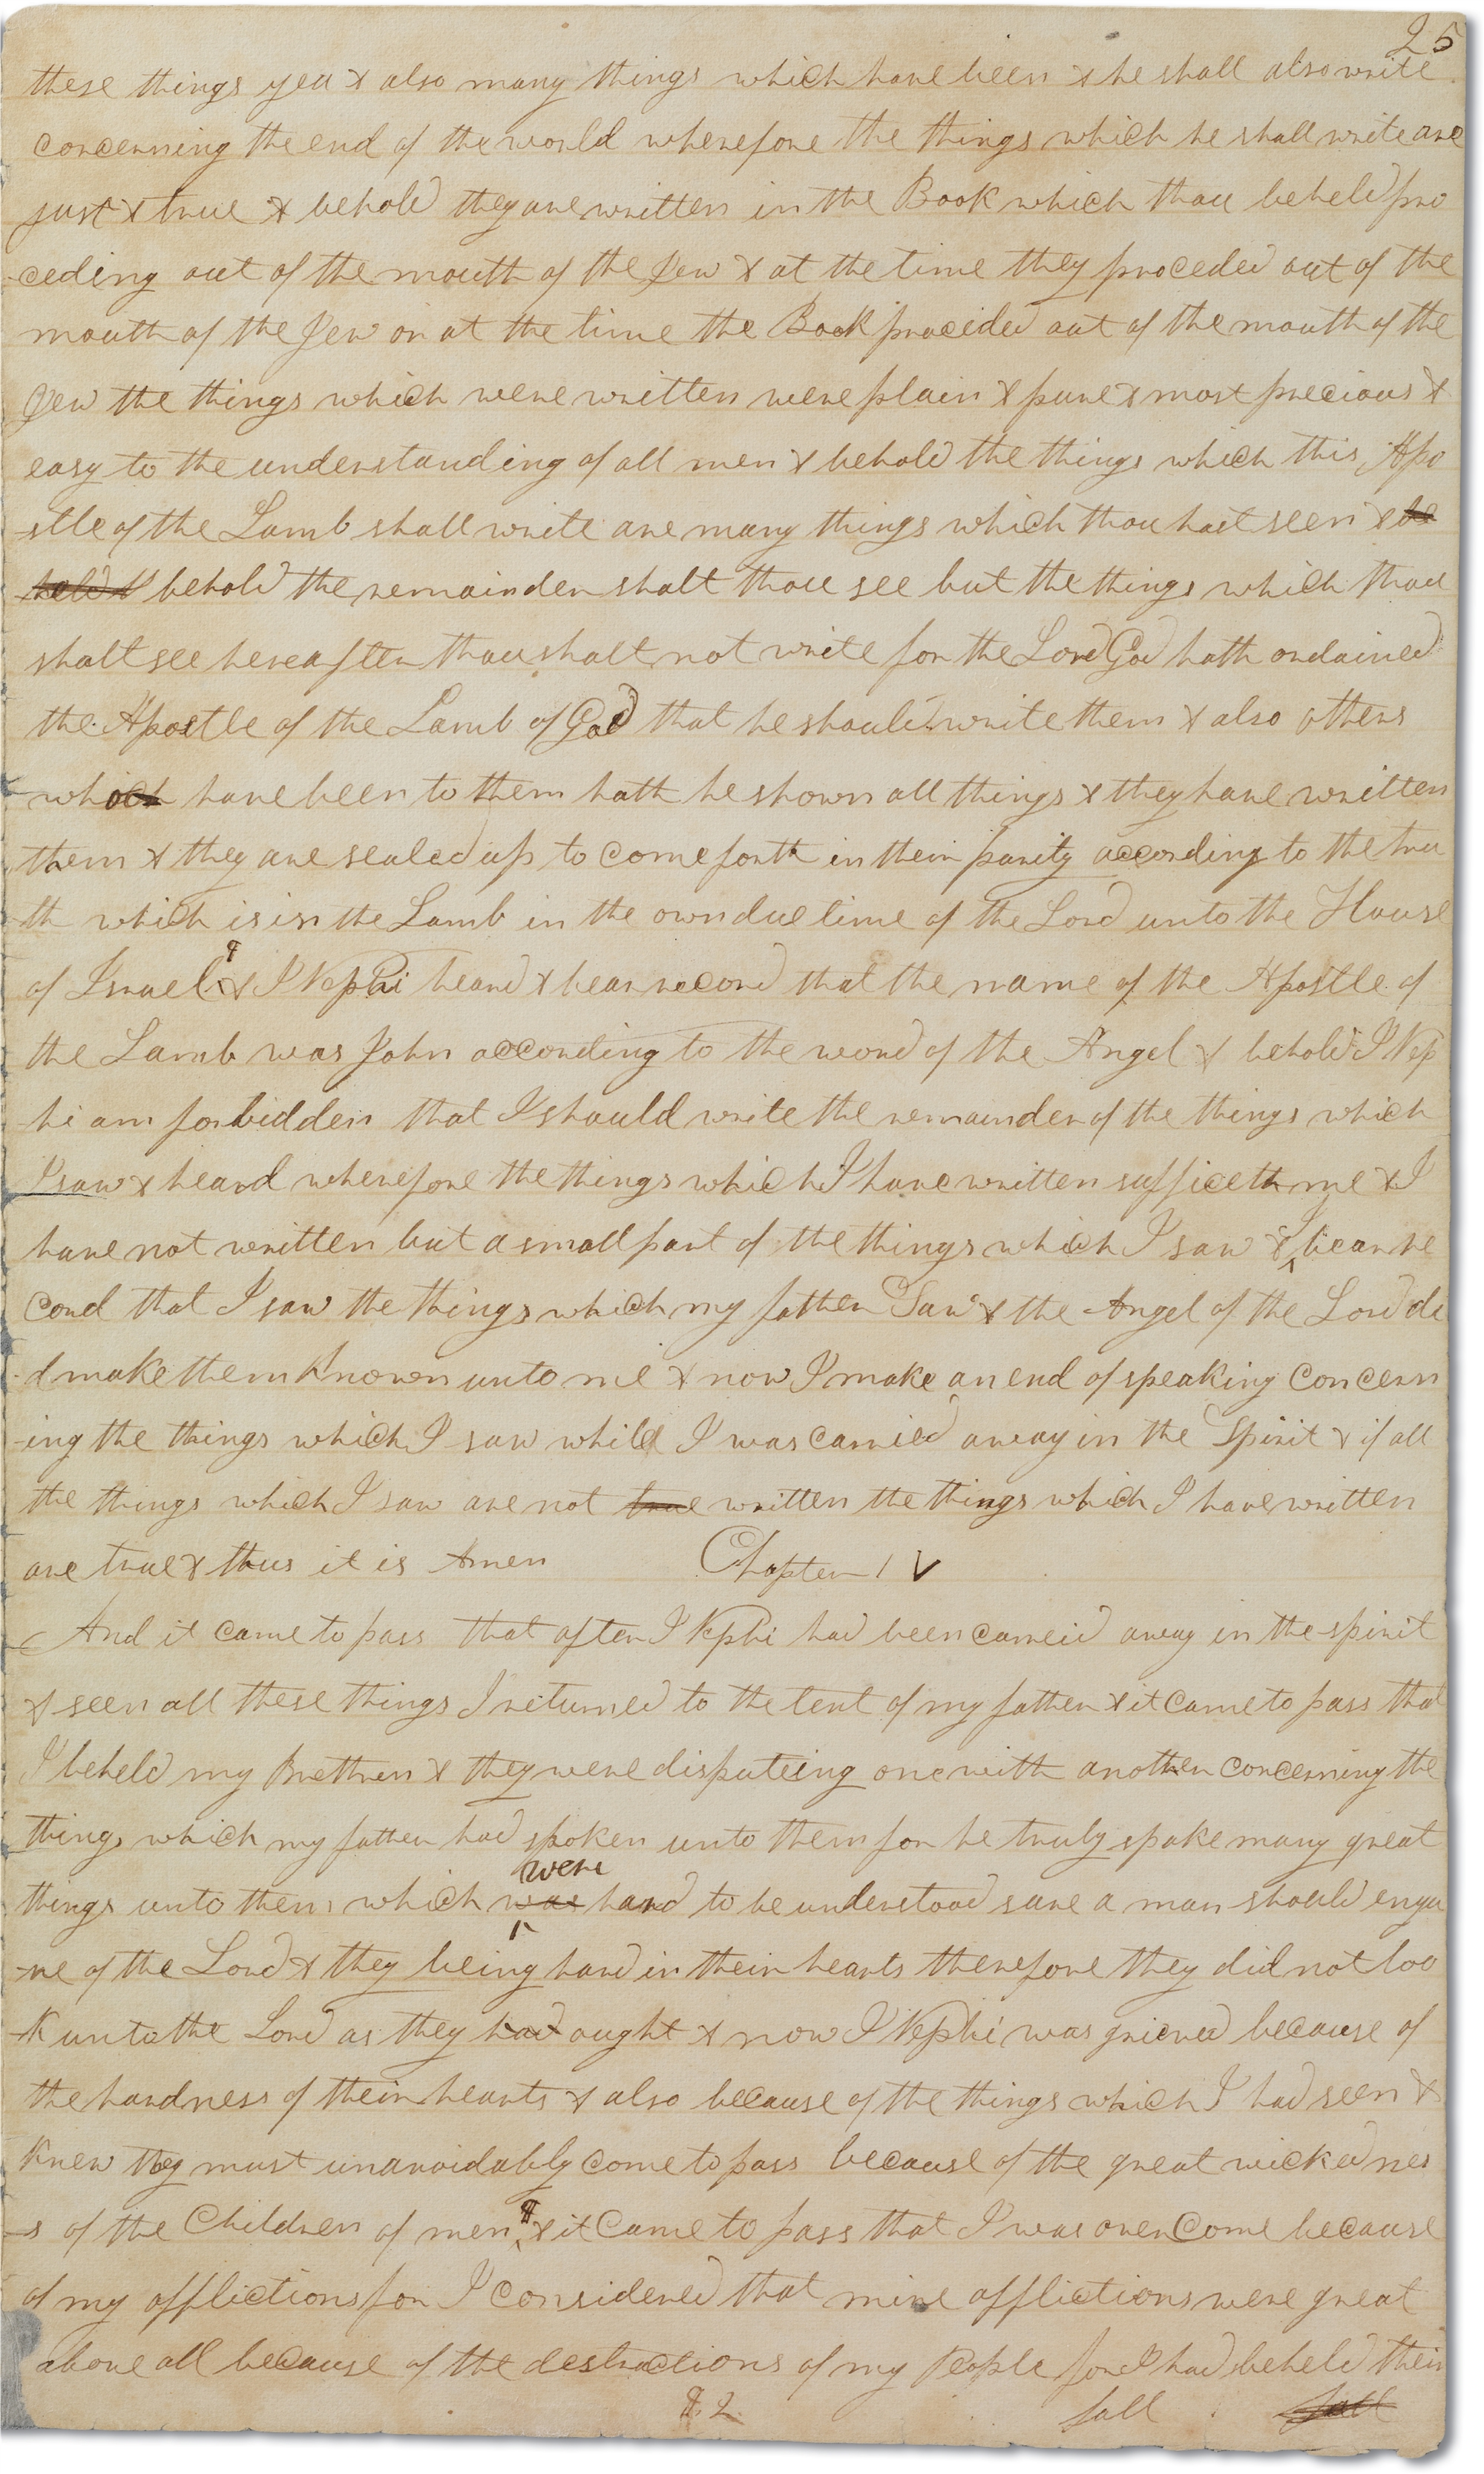 25
these things yea & also many things which have been & he shall also write
concerning the end of the world wherefore the things which he shall write are
just & true & behold they are written in the Book which thou beheld pro
ceding out of the mouth of the Jew & at the time they proceded out of the
mouth of the Jew or at the time the Book proceded out of the mouth of the
Jew the things which were written were plain & pure & most precious &
easy to the understanding of all men & behold the things which this Apo
-stle of the Lamb shall write are many things which thou hast seen & be
held & behold the remainder shalt thou see but the things which thou
shalt see hereafter thou shalt not write for the Lord God hath ordained
the Apostle of the Lamb of God that he should write them & also others
which have been to them hath he shown all things & they have written
them & they are sealed up to come forth in their purity according to the tru
th which is in the Lamb in the own due time of the Lord unto the House
of Israel & I Nephi heard & bear record that the name of the Apostle of
the Lamb was John according to the word of the Angel & behold I Nep
hi am forbidden that I should write the remainder of the things which
I saw & heard wherefore the things which I have written sufficeth me & I
have not written but a small part of the things which I saw & I bear re
cord that I saw the things which my father Saw & the Angel of the Lord di
-d make them known unto me & now I make an end of speaking concern
-ing the things which I saw while I was carried away in the Spirit & if all
the things which I saw are not true written the things which I have written
are true & thus it is Amen Chapter IV
And it came to pass that after I Nephi had been carreid away in the spirit
& seen all these things I returned to the tent of my father & it came to pass that
I beheld my Brethren & they were disputeing one with another concerning the
things which my father had spoken unto them for he truly spake many great
were
things unto them which was hard to be understood save a man should enqu
-re of the Lord & they being hard in their hearts therefore they did not loo
-k unto the Lord as they had ought & now I Nephi was grieved because of
the hardness of their hearts & also because of the things which I had seen &
knew they must unavoidably come to pass because of the great wickednes
-s of the Children of men & it came to pass that I was overcome because
of my afflictions for I considered that mine afflictions were great
above all because of the destructions of my People for I had beheld their
¶ 2 fall fall